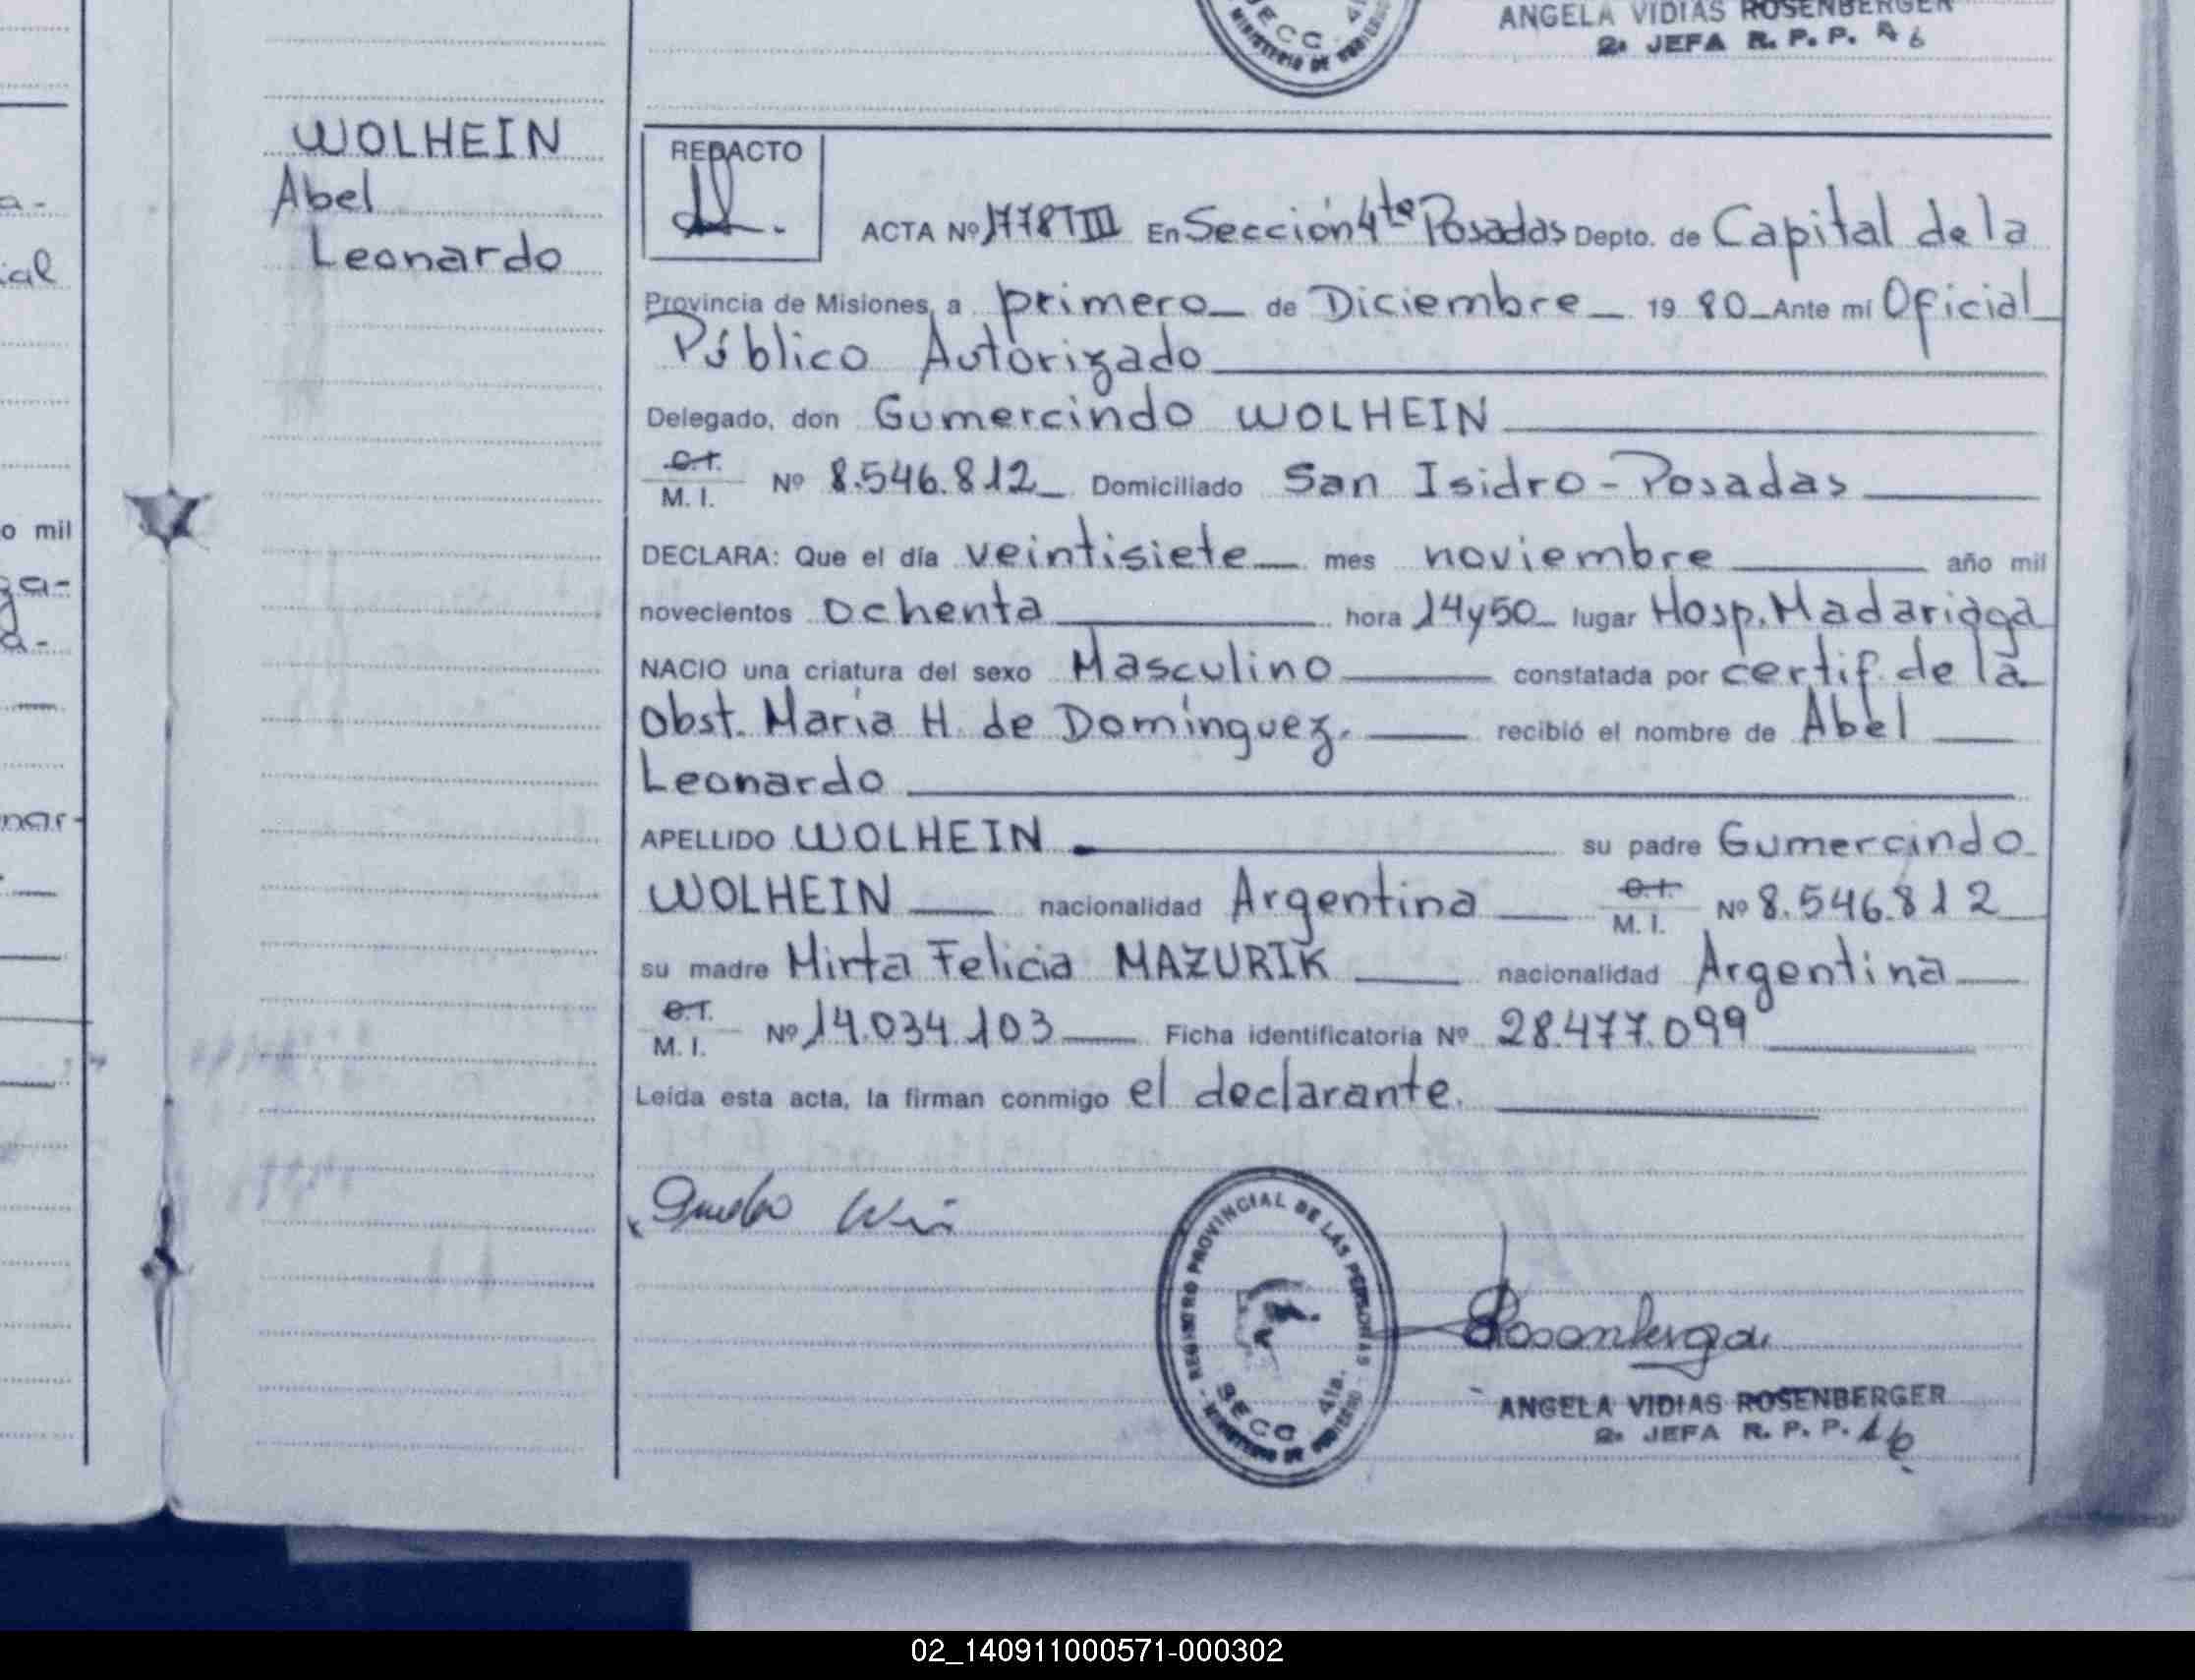 ANGELA VIDIAS ROSENBERGER
2a JEFA R. P. P.
SECC 4
MINISTERIO DE GOBIERNO
WOLHEIN
Abel
Leonardo
a-
ial
o mil
ga-
a-
nar-
REDACTO
ACTA Nº 1778TIII En Sección 4ta Posadas Depto. de Capital de la
Provincia de Misiones, a primero de Diciembre 19 80 Ante mí Oficial
Público Autorizado
Delegado, don Gumercindo WOLHEIN
C.I.
M. I. Nº 8.546.812 Domiciliado San Isidro - Posadas
DECLARA: Que el día veintisiete mes noviembre año mil
novecientos ochenta hora 14y50 lugar Hosp. Madariaga
NACIO una criatura del sexo Masculino constatada por certif. de la
Obst. María H. de Domínguez. recibió el nombre de Abel
Leonardo
APELLIDO WOLHEIN su padre Gumercindo
WOLHEIN nacionalidad Argentina C.I. M. I. Nº 8.546.812
su madre Mirta Felicia MAZURIK nacionalidad Argentina
C.I.
M. I. Nº 14.034.103 Ficha identificatoria Nº 28.477.099
Leída esta acta, la firman conmigo el declarante.
REGISTRO PROVINCIAL DE LAS PERSONAS
SECC 4ta.
MINISTERIO DE GOBIERNO
Rosenberger
ANGELA VIDIAS ROSENBERGER
2a JEFA R. P. P.
02_140911000571-000302